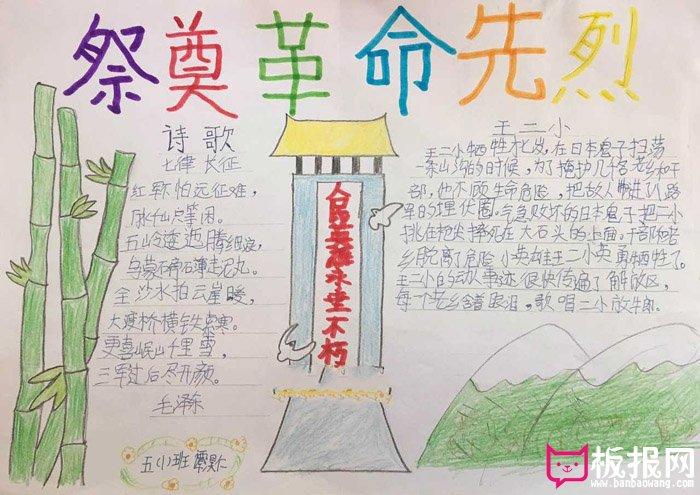 祭奠革命先烈
诗歌
七律 长征
红军不怕远征难,
万水千山只等闲。
五岭逶迤腾细浪,
乌蒙磅礴走泥丸。
金沙水拍云崖暖,
大渡桥横铁索寒。
更喜岷山千里雪,
三军过后尽开颜。
毛泽东
人民英雄永垂不朽
王二小
王二小牺牲化岁,在日本鬼子扫荡
一条山沟的时候,为了掩护几千名老乡和干
部,他不顾生命危险,把敌人带进八路
军的埋伏圈。气急败坏的日本鬼子把二小
挑在枪尖摔死在大石头的上面。干部和老
乡脱离了危险 小英雄王二小英勇牺牲了。
王二小的动人事迹很快传遍了解放区,
每个老乡含着眼泪,歌唱二小放牛郎。
五(小)班
板报网
www.banbaowang.com